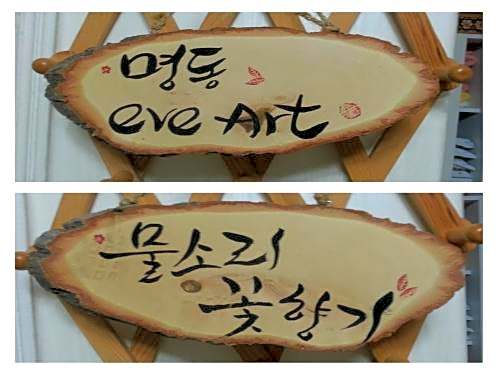 명동
eve Art
물소리
꽃향기